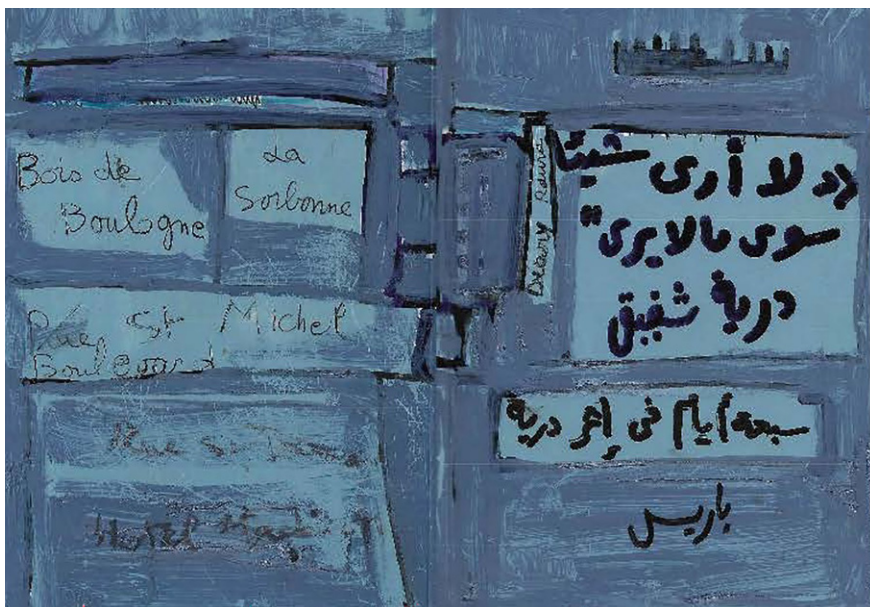 Bois de
Boulogne
La
Sorbonne
St Michel
Boulevard
Rue
Hotel
« لا أرى شيئا
سوى مالايرى"
درية شفيق
سبعة أيام في إثر درية
باريس